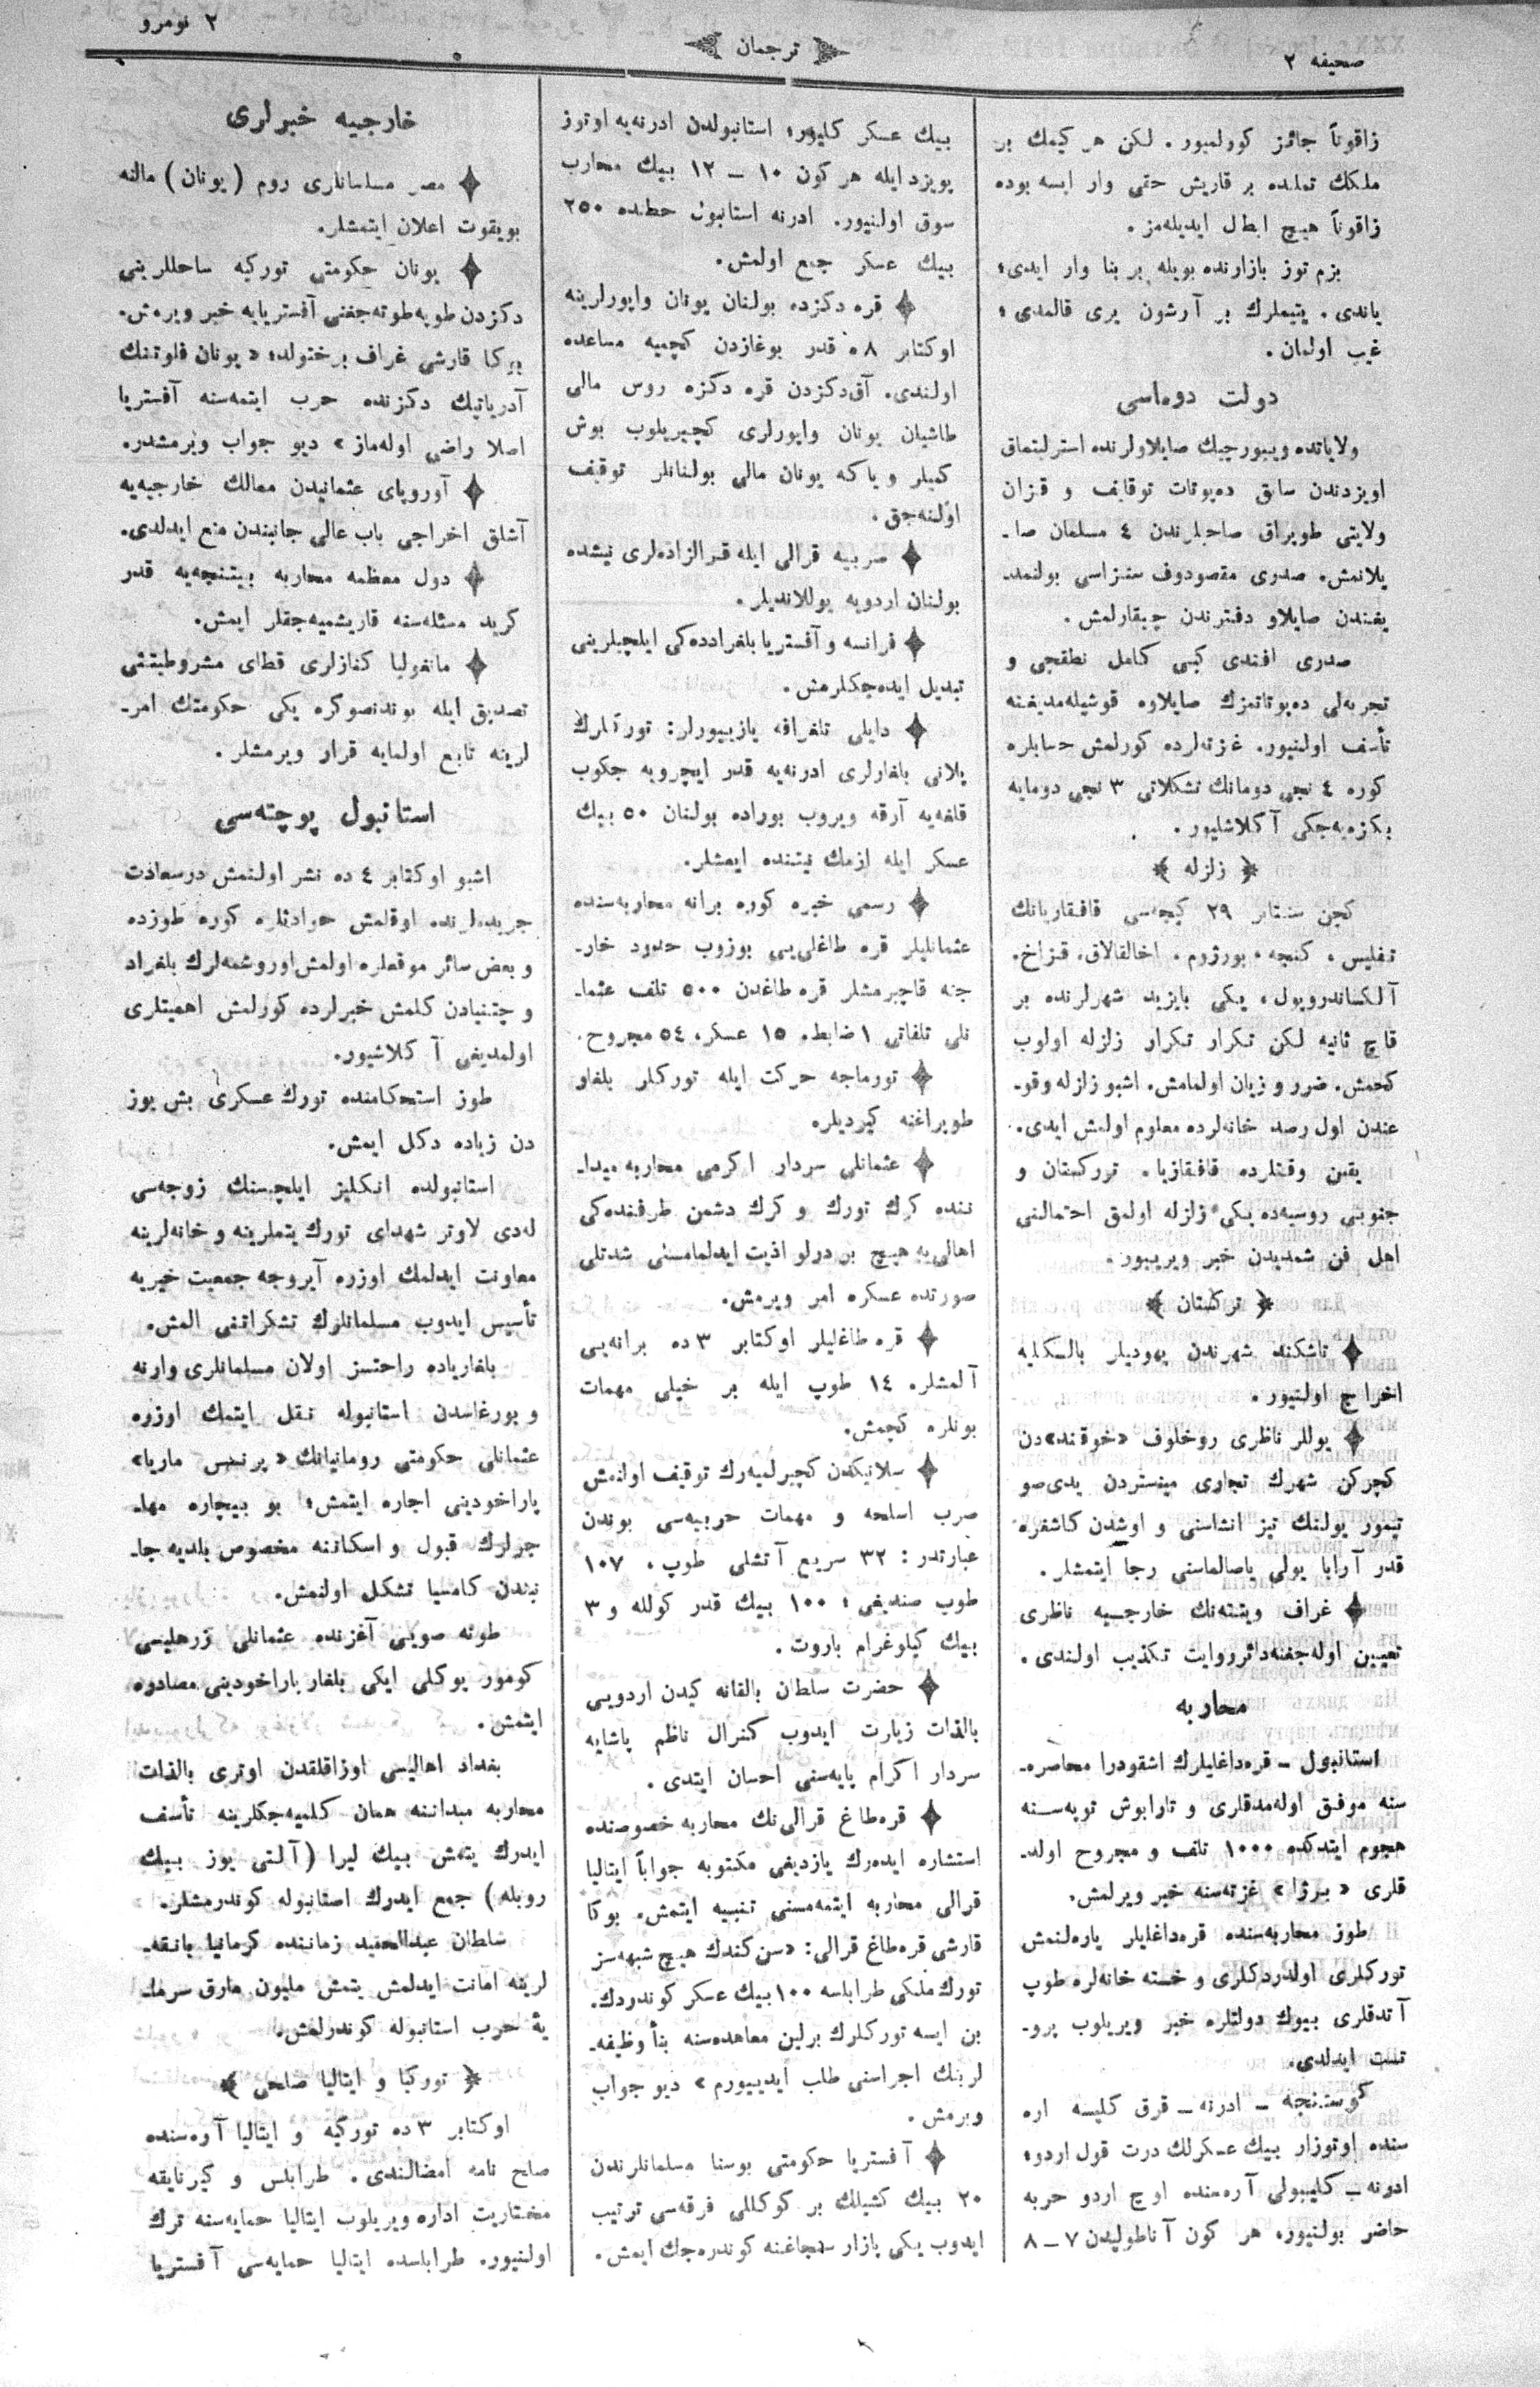 صحیفه ٢
ترجمان
٢ نومرو
زاقوناً جائز كورلمیور. لكن هر كیمك بر
ملكك تملنده بر قاریش حقی وار ایسه بوده
زاقوناً هیچ ابطال ایدیله‌مز.
بزم توز بازارنده بویله بر بنا وار ایدی؛
یاندی. یتیملرك بر آرشون یری قالمدی؛
غیب اولمان.
دولت دوماسی
ولایاتده ویبورجیك صایلاولرنده استرلیتماق
اویزدندن سابق ده‌پوتات توقایف و قزان
ولایتی طوپراق صاحبلرندن ٤ مسلمان صا-
یلانمش. صدری مقصودوف سنزاسی بولنمد-
یغندن صایلاو دفترندن چیقارلمش.
صدری افندی كبی كامل نطقجی و
تجربه‌لی ده‌پوتاتمزك صایلاوه قوشیله‌مدیغنه
تأسف اولنیور. غزته‌لرده كورلمش حسابلره
كوره ٤ نجی دومانك تشكلاتی ٣ نجی دومایه
بكزه‌یه‌جكی آكلاشلیور.
﴿ زلزله ﴾
كچن سنتابر ٢٩ كیجه‌سی قافقازیانك
تفلیس، كنجه، بورژوم، اخالقالاق، قزاخ،
آلكساندروپول، یكی بایزید شهرلرنده بر
قاچ ثانیه لكن تكرار تكرار زلزله اولوب
كچمش. ضرر و زیان اولمامش. اشبو زلزله وقو-
عندن اول رصد خانه‌لرده معلوم اولمش ایدی.
یقین وقتلرده قافقازیا، توركستان و
جنوبی روسیه‌ده یكی زلزله اولمق احتمالنی
اهل فن شمدیدن خبر ویرییور.
﴿ تركستان ﴾
تاشكند شهرندن یهودیلر بالكلیه
اخراج اولنیور.
یوللر ناظری روخلوف «خوقند»دن
كچركن شهرك تجاری مینستردن یدی‌صو
تیمور یولنك تیز انشاسنی و اوشدن كاشغره
قدر آرابا یولی یاصالماسنی رجا ایتمشلر.
غراف ویتته‌نك خارجیه ناظری
تعیین اوله‌جغنه‌دائرروایت تكذیب اولندی.
محاربه
استانبول - قره‌داغلیلرك اشقودرا محاصره-
سنه موفق اوله‌مدقلری و تارابوش توپه‌سنه
هجوم ایتدكده ١٠٠٠ تلف و مجروح اولد-
قلری «برژا» غزته‌سنه خبر ویرلمش.
طوز محاربه‌سنده قره‌داغلیلر یاره‌لنمش
توركلری اولدردكلری و خسته خانه‌لره طوپ
آتدقلری بیوك دولتلره خبر ویریلوب پرو-
تست ایدلدی.
كوستنجه - ادرنه - قرق كلیسه اره
سنده اوتوزار بیك عسكرلك درت قول اردو؛
ادرنه - كلیبولی آره‌سنده اوچ اردو حربه
حاضر بولنیور. هر كون آناطولیدن ٧ - ٨
بیك عسكر كلیور؛ استانبولدن ادرنه‌یه اوتوز
پویزد ایله هر كون ١٠ - ١٢ بیك محارب
سوق اولنیور. ادرنه استانبول خطنده ٢٥٠
بیك عسكر جمع اولمش.
قره دكزده بولنان یونان واپورلرینه
اوكتابر ٨ه قدر بوغازدن كچمیه مساعده
اولندی. آق‌دكزدن قره دكزه روس مالی
طاشیان یونان واپورلری كچیریلوب بوش
كمیلر و یاكه یونان مالی بولنانلر توقیف
اولنه‌جق.
صربیه قرالی ایله قرالزاده‌لری نیشده
بولنان اردویه یوللاندیلر.
فرانسه و آفستریا بلغرادده‌كی ایلچیلرینی
تبدیل ایده‌جكلرمش.
دایلی تلغرافه یازییورلر: توركلرك
پلانی بلغارلری ادرنه‌یه قدر ایچرویه چكوب
قلغه‌یه آرقه ویروب بوراده بولنان ٥٠ بیك
عسكر ایله ازمك نیتنده ایمشلر.
رسمی خبره كوره برانه محاربه‌سنده
عثمانلیلر قره طاغلی‌یی بوزوب حدود خار-
جنه قاچیرمشلر قره طاغدن ٥٠٠ تلف عثما-
نلی تلفاتی ١ ضابط، ١٥ عسكر، ٥٤ مجروح.
تورماجه حركت ایله توركلر بلغار
طوپراغنه كیردیلر.
عثمانلی سردار اكرمی محاربه میدا-
ننده كرك تورك و كرك دشمن طرفنده‌كی
اهالی‌یه هیچ بر درلو اذیت ایدلمامسنی شدتلی
صورتده عسكره امر ویرمش.
قره طاغلیلر اوكتابر ٣ ده برانه‌یی
آلمشلر. ١٤ طوپ ایله بر خیلی مهمات
بونلره كچمش.
سلانیكدن كچیرلمیه‌رك توقیف اولنمش
صرب اسلحه و مهمات حربیه‌سی بوندن
عبارتدر: ٣٢ سریع آتشلی طوپ، ١٠٧
طوپ صندیغی؛ ١٠٠ بیك قدر كولله و ٣
بیك كیلوغرام باروت.
حضرت سلطان بالقانه كیدن اردویی
بالذات زیارت ایدوب كنرال ناظم پاشایه
سردار اكرام پایه‌سنی احسان ایتدی.
قره‌طاغ قرالی‌نك محاربه خصوصنده
استشاره ایده‌رك یازدیغی مكتوبه جواباً ایتالیا
قرالی محاربه ایتمه‌مسنی تنبیه ایتمش. بوكا
قارشی قره‌طاغ قرالی: «سن كندك هیچ شبهه‌سز
تورك ملكی طرابلسه ١٠٠ بیك عسكر كوندردك.
بن ایسه توركلرك برلین معاهده‌سنه بنأ وظیفه-
لرینك اجراسنی طلب ایدییورم» دیو جواب
ویرمش.
آفستریا حكومتی بوسنا مسلمانلرندن
٢٠ بیك كشیلك بر كوكللی فرقه‌سی ترتیب
ایدوب یكی بازار سنجاغنه كوندره‌جك ایمش.
خارجیه خبرلری
مصر مسلمانلری روم (یونان) مالنه
بویقوت اعلان ایتمشلر.
یونان حكومتی توركیه ساحللرینی
دكزدن طوپه‌طوته‌جغنی آفستریایه خبر ویرمش.
بوكا قارشی غراف برختولد؛ «یونان فلوتنك
آدریاتیك دكزنده حرب ایتمه‌سنه آفستریا
اصلا راضی اوله‌ماز» دیو جواب ویرمشدر.
آوروپای عثمانیدن ممالك خارجیه‌یه
آشلق اخراجی باب عالی جانبندن منع ایدلدی.
دول معظمه محاربه بیتنجه‌یه قدر
كرید مسئله‌سنه قاریشمیه‌جقلر ایمش.
مانغولیا كنازلری قطای مشروطیتنی
تصدیق ایله بوندنصوكره یكی حكومتك امر-
لرینه تابع اولمایه قرار ویرمشلر.
استانبول پوچته‌سی
اشبو اوكتابر ٤ ده نشر اولنمش درسعادت
جریده‌لرنده اوقلمش حوادثلره كوره طوزده
و بعض سائر موقعلره اولمش‌اوروشمه‌لرك بلغراد
و چتنیادن كلمش خبرلرده كورلمش اهمیتلری
اولمدیغی آكلاشیور.
طوز استحكامنده تورك عسكری بش یوز
دن زیاده دكل ایمش.
استانبولده انكلیز ایلچیسنك زوجه‌سی
له‌دی لاوتر شهدای تورك یتملرینه و خانه‌لرینه
معاونت ایدلمك اوزره آیروجه جمعیت خیریه
تأسیس ایدوب مسلمانلرك تشكراتنی المش.
بلغاریاده راحتسز اولان مسلمانلری وارنه
و بورغاسدن استانبوله نقل ایتمك اوزره
عثمانلی حكومتی رومانیانك «پرنسس ماریا»
پاراخودینی اجاره ایتمش؛ بو بیچاره مها-
جرلرك قبول و اسكاننه مخصوص بلدیه جا-
نبندن كامسیا تشكل اولنمش.
طونه صویی آغزنده عثمانلی زرهلیسی
كومور یوكلی ایكی بلغار پاراخودینی مصادره
ایتمش.
بغداد اهالیسی اوزاقلقدن اوتری بالذات
محاربه میداننه همان كلمیه‌جكلرینه تأسف
ایدرك یتمش بیك لیرا (آلتی یوز بیك
روبله) جمع ایدرك استانبوله كوندرمشلر.
سلطان عبدالحمید زماننده كرمانیا بانقه-
لرینه امانت ایدلمش یتمش ملیون مارق سرما-
یۀ حرب استانبوله كوندرلمش.
﴿ توركیا و ایتالیا صلحی ﴾
اوكتابر ٣ ده توركیه و ایتالیا آره‌سنده
صلح نامه امضالندی. طرابلس و كیرنایقه
مختاریت اداره ویریلوب ایتالیا حمایه‌سنه ترك
اولنیور. طرابلسده ایتالیا حمایه‌سی آفستریا